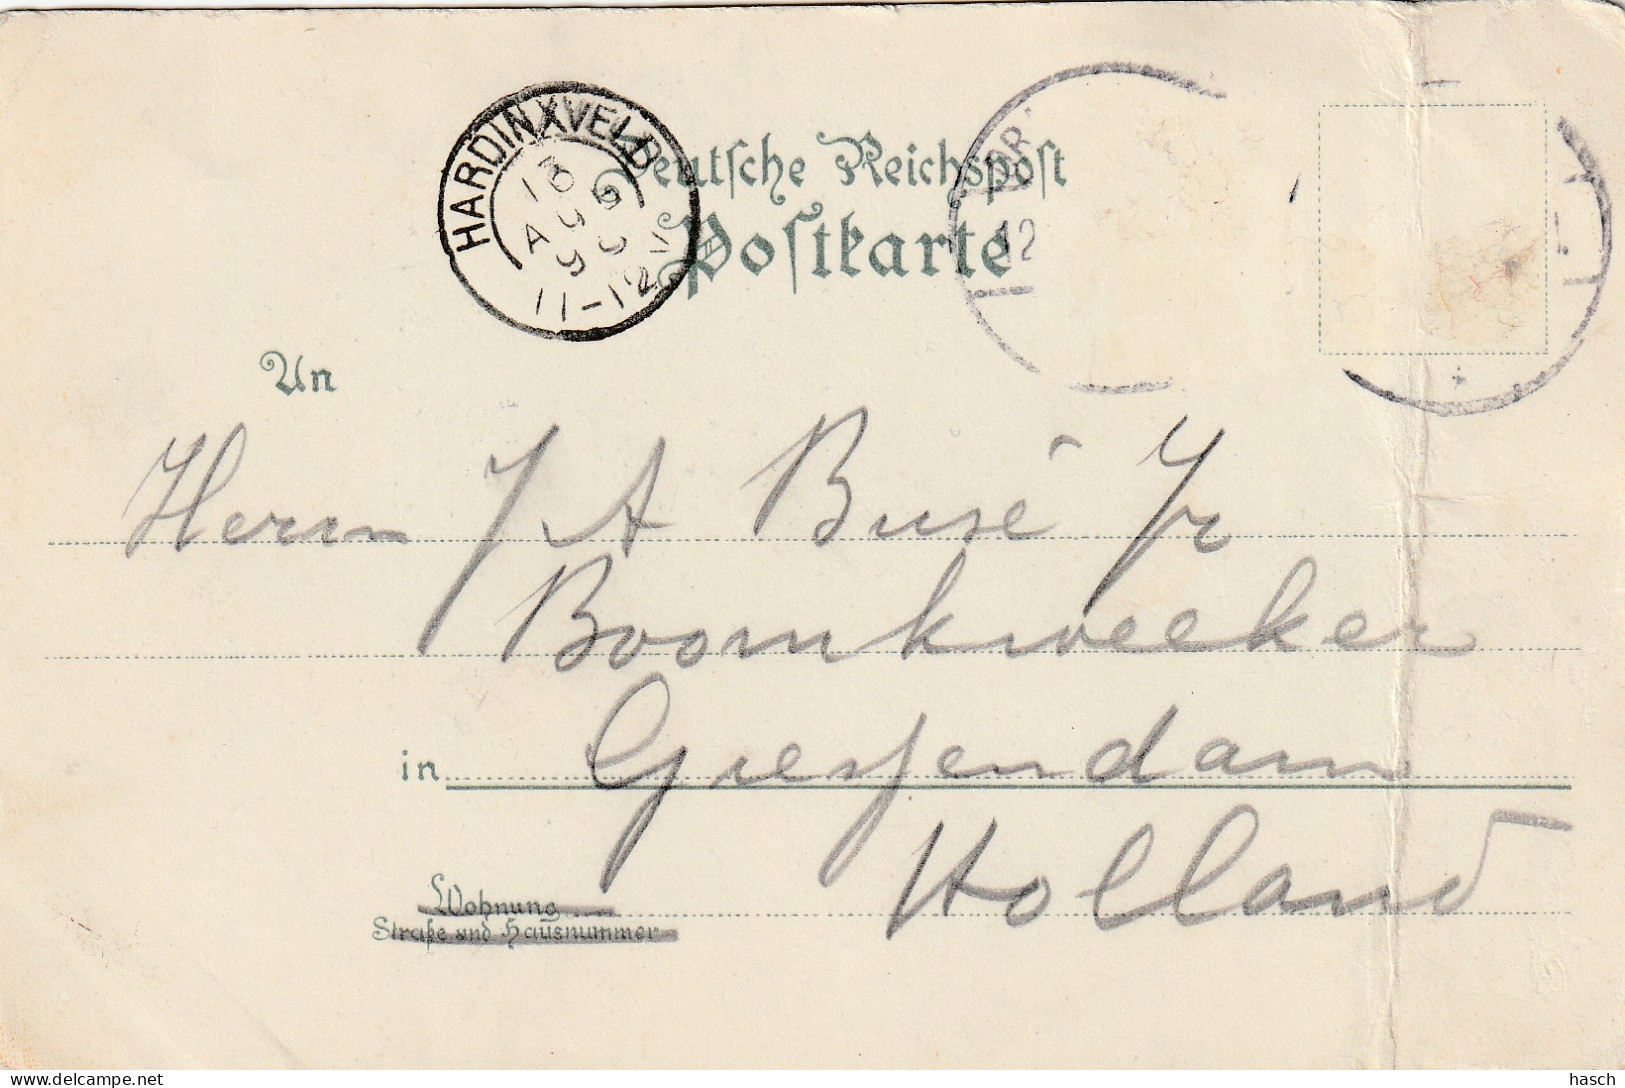 HARDINXVELD
11-12V
Deutsche Reichspost
Postkarte
12
An
Herrn J A Busé Jr
Boomkweeker
in Giessendam
Holland
Wohnung
Straße und Hausnummer
Delcampe.net
hasch